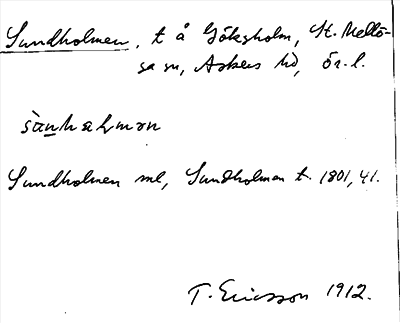 Sundholmen, t å Göksholm, St. Mellö-
sa sn, Askers hd, ör. l.
Sundholmen ml, Sundholman t. 1801, 41.
T. Ericsson 1912.